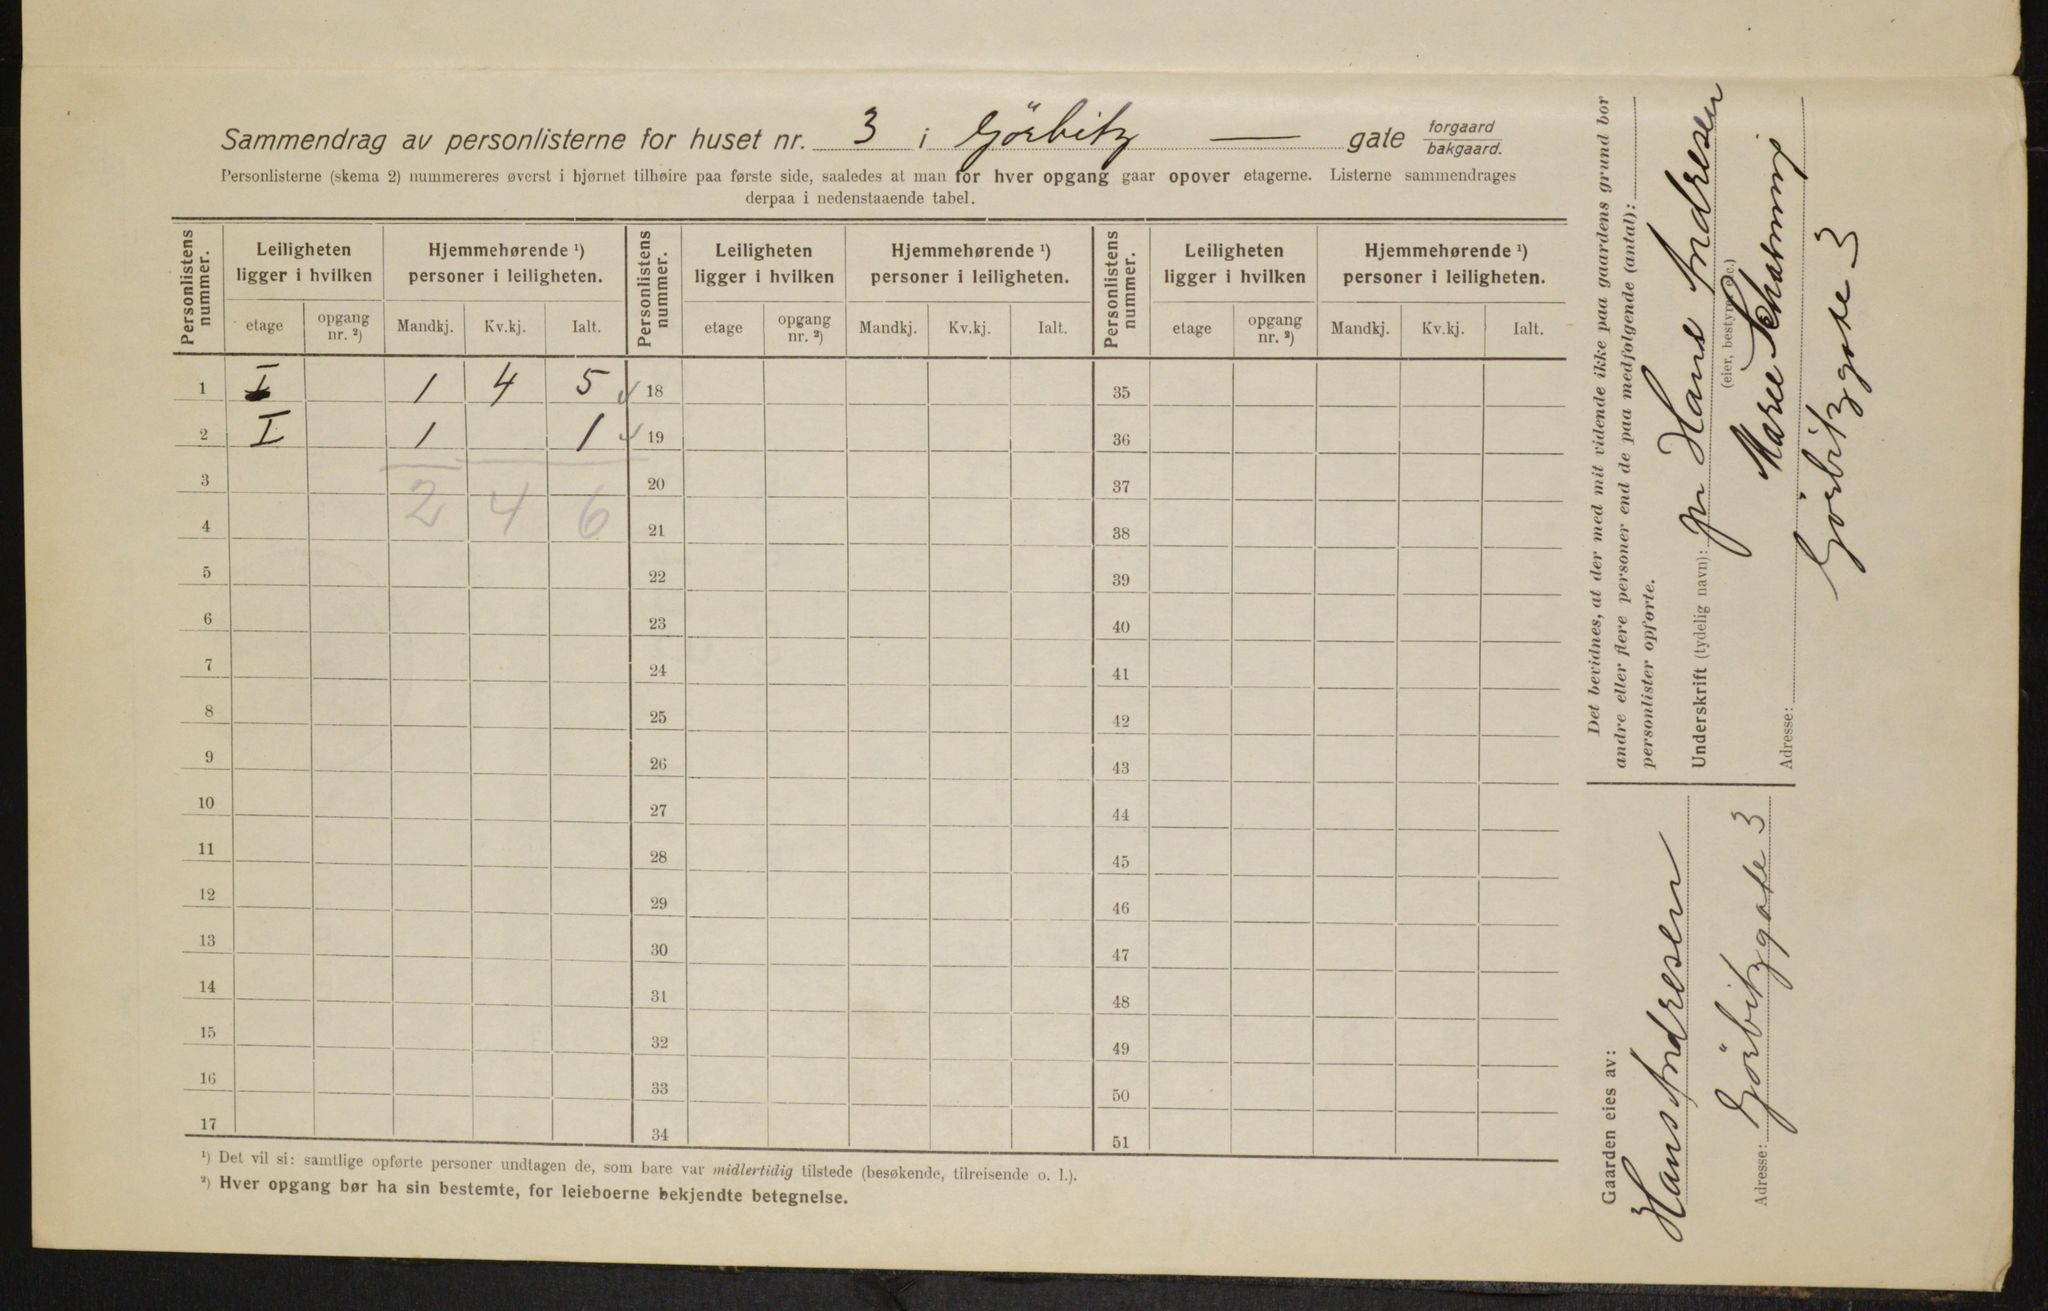 Sammendrag av personlisterne for huset nr. 3 i Görbitz — gate forgaard bakgaard.
Personlisterne (skema 2) nummereres øverst i hjørnet tilhøire paa første side, saaledes at man for hver opgang gaar opover etagerne. Listerne sammendrages
derpaa i nedenstaaende tabel.
Personlistens nummer. Leiligheten ligger i hvilken Hjemmehørende ¹) personer i leiligheten. Personlistens nummer. Leiligheten ligger i hvilken Hjemmehørende ¹) personer i leiligheten. Personlistens nummer. Leiligheten ligger i hvilken Hjemmehørende ¹) personer i leiligheten.
etage opgang nr. ²) Mandkj. Kv.kj. Ialt. etage opgang nr. ²) Mandkj. Kv.kj. Ialt. etage opgang nr. ²) Mandkj. Kv.kj. Ialt.
1 I 1 4 5 18 35
2 I 1 1 19 36
3 2 4 6 20 37
4 21 38
5 22 39
6 23 40
7 24 41
8 25 42
9 26 43
10 27 44
11 28 45
12 29 46
13 30 47
14 31 48
15 32 49
16 33 50
17 34 51
¹) Det vil si: samtlige opførte personer undtagen de, som bare var midlertidig tilstede (besøkende, tilreisende o. l.).
²) Hver opgang bør ha sin bestemte, for leieboerne bekjendte betegnelse.
Det bevidnes, at der med mit vidende ikke paa gaardens grund bor
andre eller flere personer end de paa medfølgende (antal):
personlister opførte.
Underskrift (tydelig navn): pr Hans Andresen
(eier, bestyrer etc.)
Marie
Adresse: Görbitzgate 3
Gaarden eies av:
Hans Andresen
Adresse: Görbitzgate 3